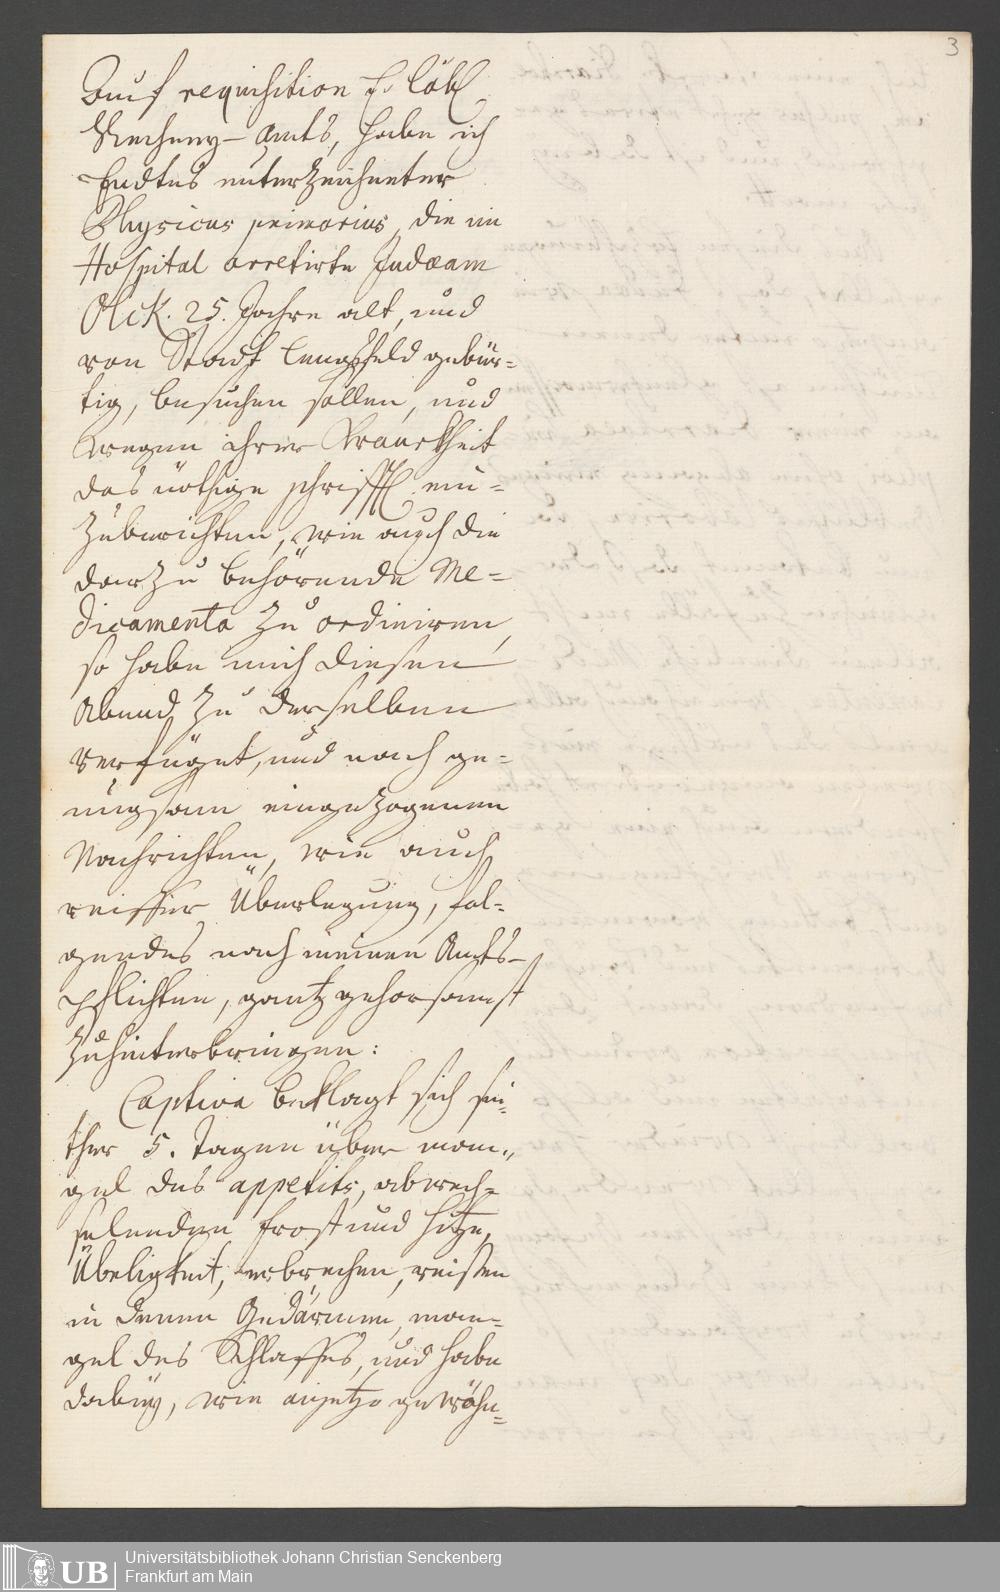 3
Auf requisition E. löbl.
Rechney-Amts, habe ich
Endts unterzeichneter
Physicus primarius, die im
Hospital arretirte Judaeam
25. Jahre alt, und
von Stadt Lengsfeld gebür-
tig, besuchen sollen, und
wegen ihrer Kranckheit
das nöthige schrifftl. ein-
zuberichten, wie auch die
darzu behörende Me-
dicamenta zu ordiniren,
so habe mich diesen
Abend zu derselben
verfüget, und nach ge-
nugsam eingezogenen
Nachrichten, wie auch
reiffer Überlegung, fol-
gendes nach meinen Amts-
pflichten, gantz gehorsamst
zuhinterbringen:
Captiva beklagt sich sei-
ther 5. Tagen über man-
gel des appetits, abwech-
selenden frost und hitze,
Übeligkeit, erbrechen, reissen
in denen Gedärmen, man-
gel des Schlaffes, und habe
dabey, wie anjetzo gewöhn-
UB
Universitätsbibliothek Johann Christian Senckenberg
Frankfurt am Main